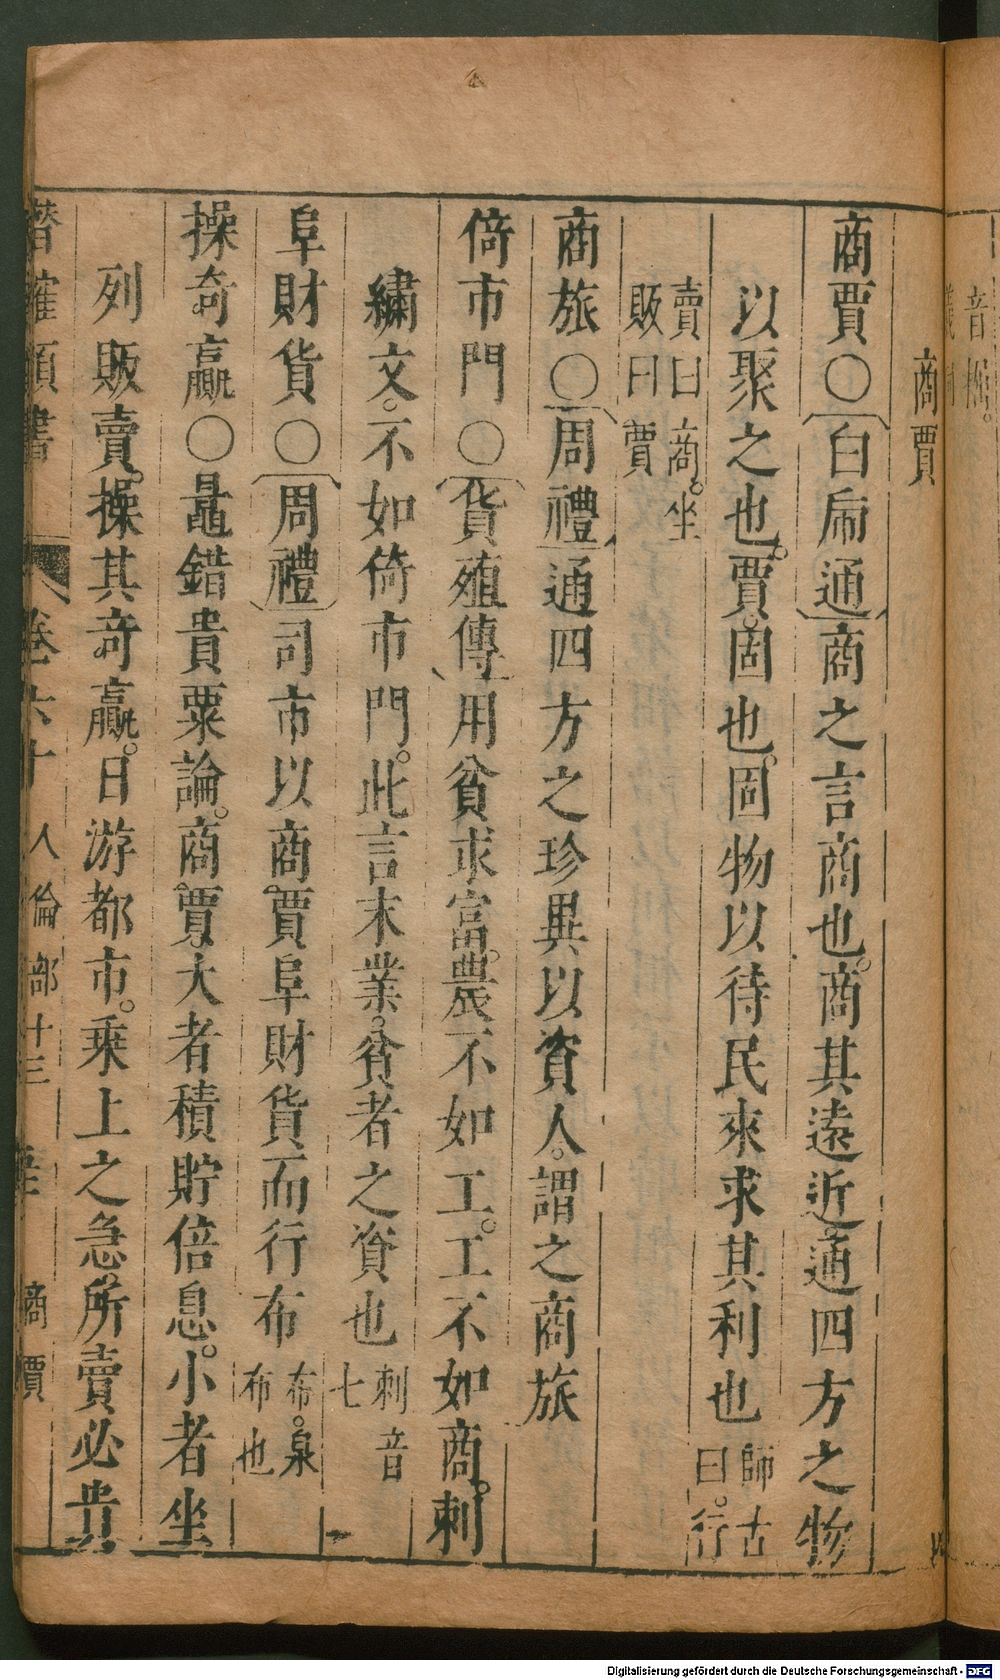 商賈
商賈○白虎通商之言商也。商其遠近通四方之物
以聚之也。賈。固也。固物以待民來求其利也師古曰。行
賣曰商。坐販曰賈
商旅○周禮通四方之珍異以資人。謂之商旅
倚市門○貨殖傳用貧求富。農不如工。工不如商。刺
繡文。不如倚市門。此言末業。貧者之資也刺音七
阜財貨○周禮司市以商賈阜財貨而行布布。泉布也
操奇贏○鼂錯貴粟論。商賈大者積貯倍息。小者坐
列販賣。操其奇贏。日游都市。乗上之急。所賣必貴
卷六十 人倫部十三 商賈
Digitalisierung gefördert durch die Deutsche Forschungsgemeinschaft - DFG